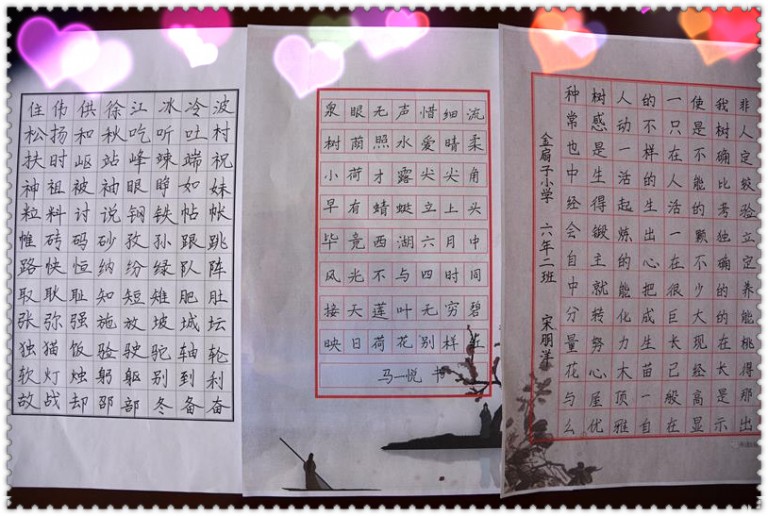 住伟供徐江冰冷波
松扬和秋吃听吐村
扶时岖站峰竦端祝
神祖被袖眼睁如妹
粒料讨说钢铁帖帐
惟砖码砂孜孙跟跳
路快恒纳纷绿队阵
取耿耻知短雉肥肚
张弥强施放坡城坛
独猫饭验驶驼轴轮
软灯烛躬躯别到利
故战却邵部冬备奋
泉眼无声惜细流
树荫照水爱晴柔
小荷才露尖尖角
早有蜻蜓立上头
毕竟西湖六月中
风光不与四时同
接天莲叶无穷碧
映日荷花别样红
马一悦 书
金扇子小学 六年二班 宋朋洋
种树人的一使我非
常感动不只是树人
也是一样在不确定
中生活的人能比较
经得起生活的考验
会锻炼出一颗独立
自主的心在不确定
中就能把很少的养
分转化成巨大的能
量努力生长现在桃
花心木苗已经长得
与屋顶一般高是那
么优雅自在显示出